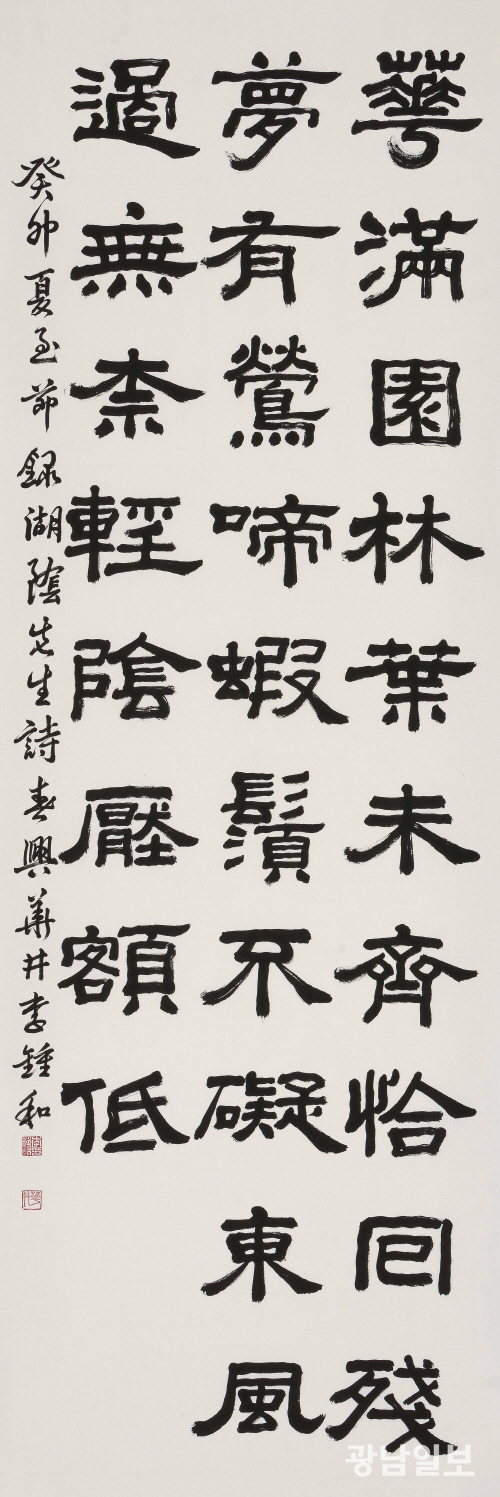 華滿園林葉未齊恰回殘
夢有鶯啼蝦鬚不礙東風
過無柰輕陰壓額低
癸卯夏至節錄湖陰先生詩春興華井李鍾和
광남일보